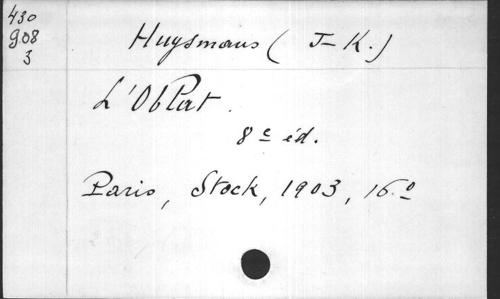 430
908
3
Huysmans (J-K.)
L'Oblat.
8e éd.
Paris, Stock, 1903, 16.º